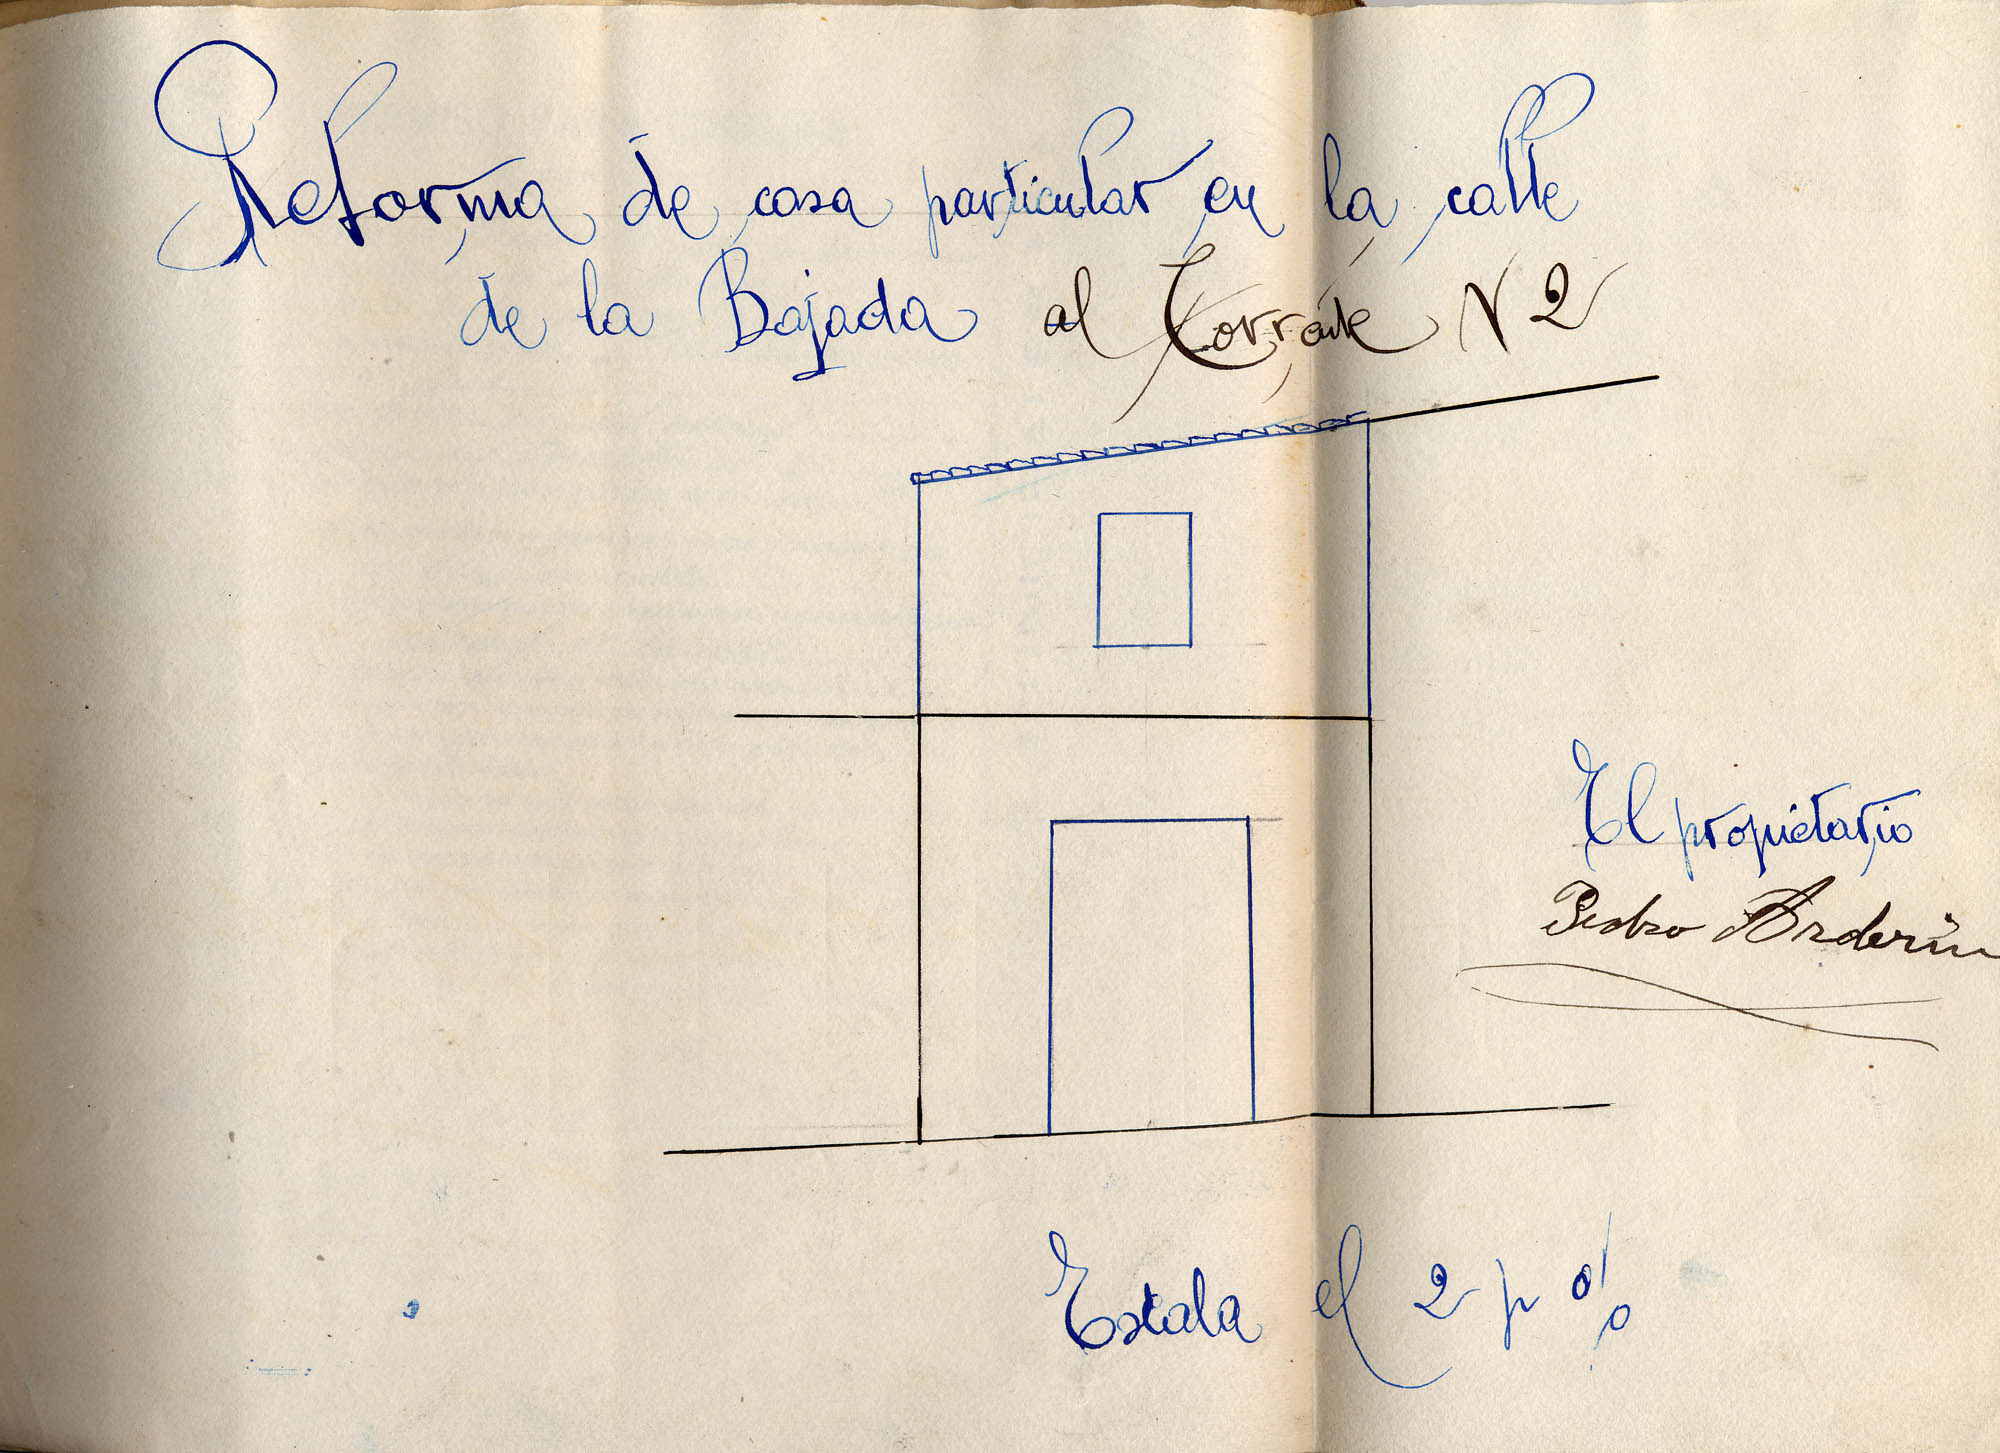 Reforma de casa particular en la calle
de la Bajada al Torrente N 2
El propietario
Pedro Arderiu
Escala el 2 p %